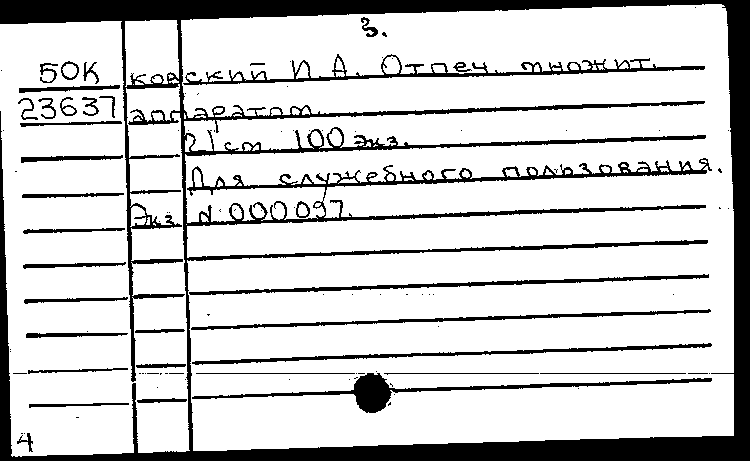 3.
50К ковский И. А. Отпеч. множит.
23637 аппаратом.
21 см 100 экз.
Для служебного пользования.
Экз. N 000097.
4